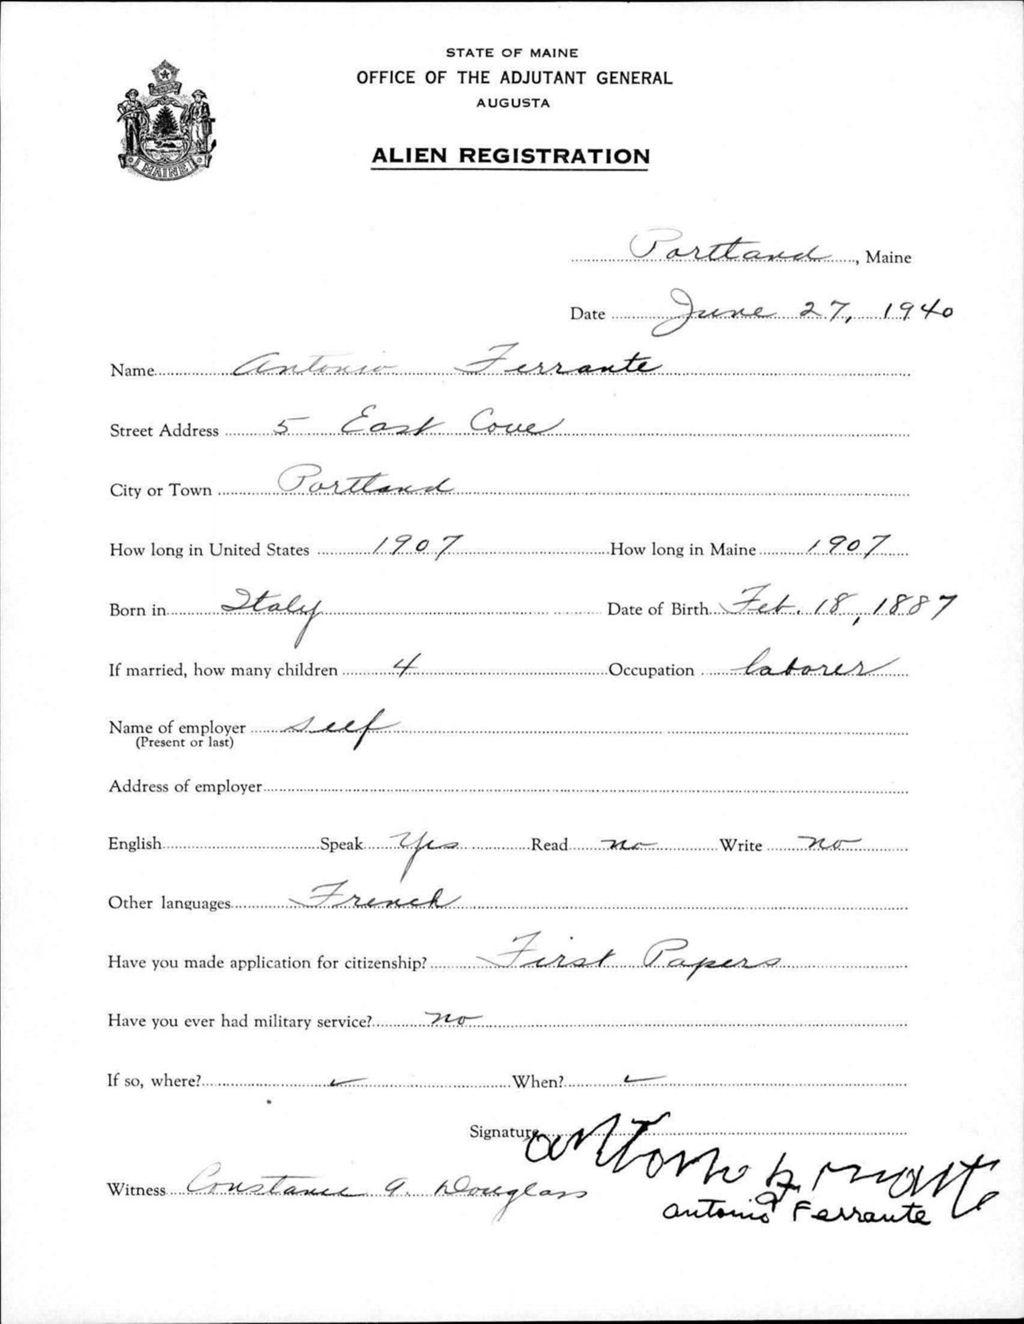 STATE OF MAINE
OFFICE OF THE ADJUTANT GENERAL
AUGUSTA
ALIEN REGISTRATION
MAINE
Portland, Maine
Date June 27, 1940
Name Antonio Ferrante
Street Address 5 East Cove
City or Town Portland
How long in United States 1907 How long in Maine 1907
Born in Italy Date of Birth Feb. 18, 1887
If married, how many children 4 Occupation laborer
Name of employer self
(Present or last)
Address of employer
English Speak Yes Read no Write no
Other languages French
Have you made application for citizenship? First Papers
Have you ever had military service? no
If so, where? When?
Signature
Witness Constance A. Douglass
Antonio Ferrante